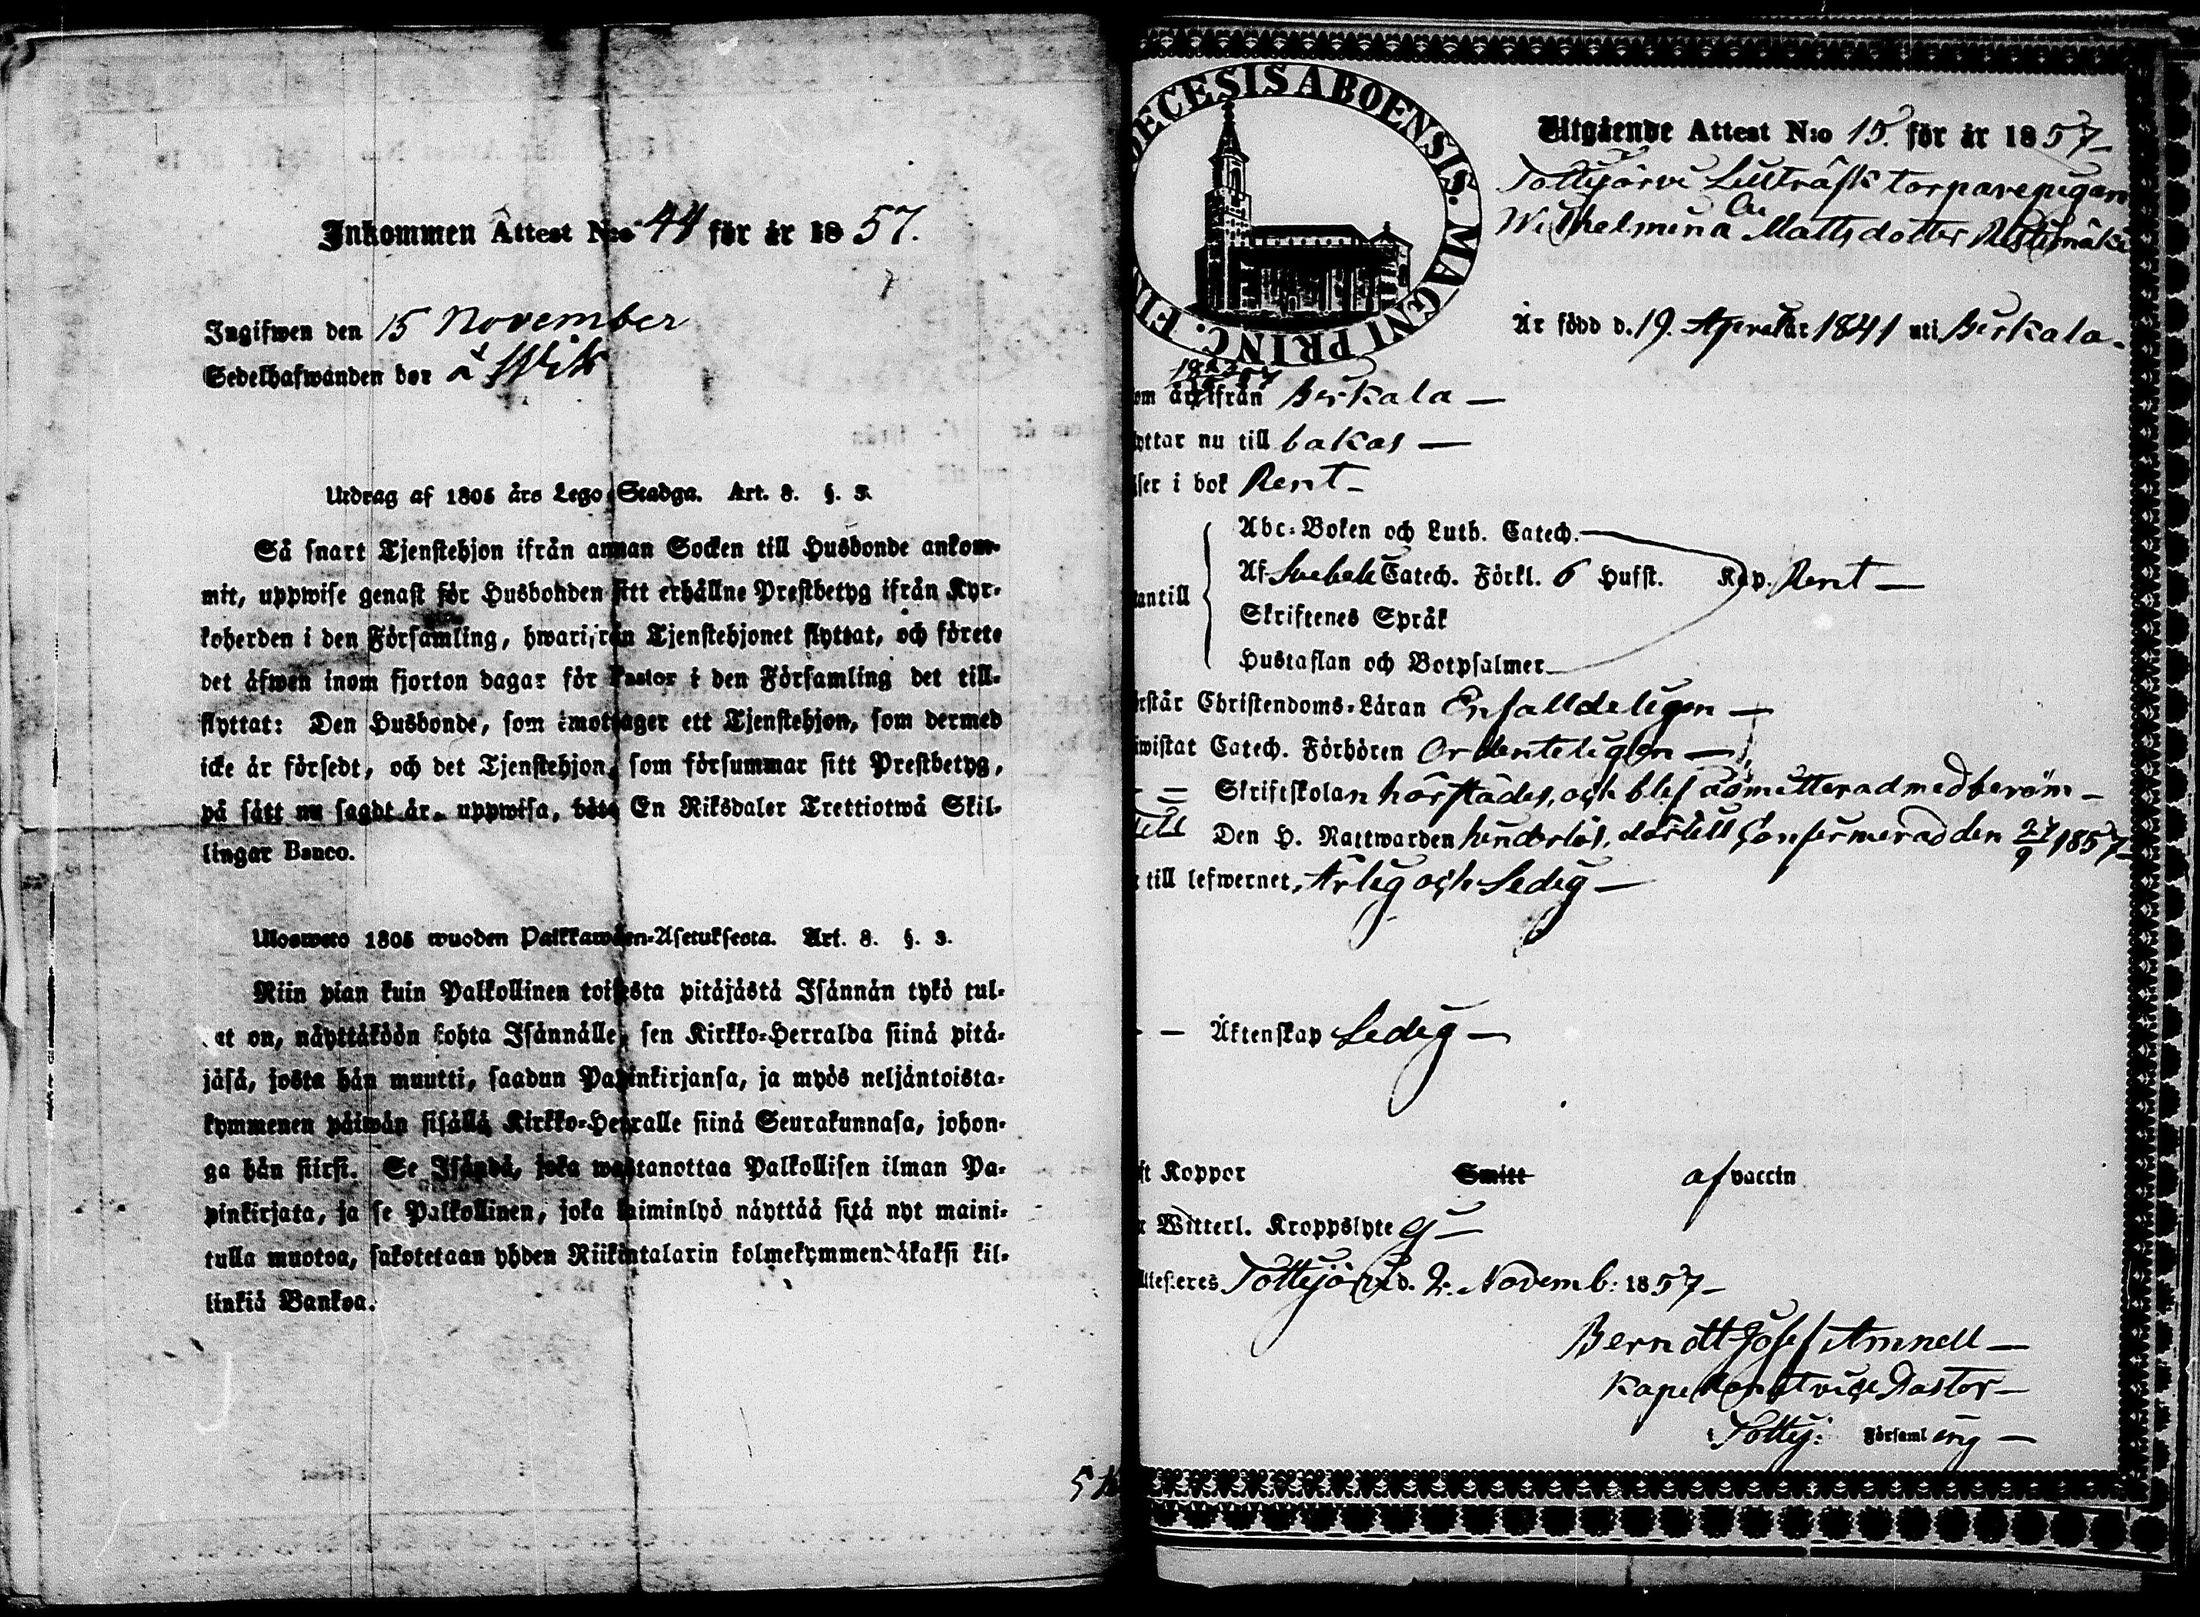 Inkommen Attest N:o 44 för år 1857.
Ingifwen den 15 November
Sedelhafwanden bor å Wik
Utdrag af 1805 års Lego Stadga. Art. 8. §. 3.
Så snart Tjenstehjon ifrån annan Socken till Husbonde ankom-
mit, uppwise genast för Husbonden sitt erhållne Prestbetyg ifrån Kyr-
koherden i den Församling, hwarifrån Tjenstehjonet flyttat, och förete
det äfwen inom fjorton dagar för Pastor i den Församling det till-
flyttat: Den Husbonde, som emottager ett Tjenstehjon, som dermed
icke är försedt, och det Tjenstehjon, som försummar sitt Prestbetyg,
på sätt nu sagdt är, uppwisa, böte En Riksdaler Trettiotwå Skil-
lingar Banco.
Ulosweto 1805 wuoden Palkkawäen-Asetuksesta. Art. 8. §. 3.
Niin pian kuin Palkollinen toisesta pitäjästä Isännän tykö tul-
lut on, näyttäköön kohta Isännälle, sen Kirkko-Herralda siinä pitä-
jäsä, josta hän muutti, saadun Papinkirjansa, ja myös neljäntoista-
kymmenen päiwän sisällä Kirkko-Herralle siinä Seurakunnasa, johon-
ga hän siirsi. Se Isändä, joka wastanottaa Palkollisen ilman Pa-
pinkirjata, ja se Palkollinen, joka laiminlyö näyttää sitä nyt maini-
tulla muotoa, sakotetaan yhden Riikintalarin kolmekymmendäkaksi kil-
linkiä Bankoa.
DECESIS ABOENSIS. MAGNI PRINC. FIN
Utgående Attest N:o 15. för år 1857
Tottijärvi Lilliträsk torparepigan
Wilhelmina Mattsdotter
Är född d. 19. April år 1841 uti Birkala.
om år ifrån Birkala
yttar nu till bakas
äser i bok Rent
antill
Abc-Boken och Luth. Catech.
Af Svebeli Catech. Förkl. 6 Hufst. Kap. Rent
Skriftenes Språk
Hustaflan och Botpsalmer
rstår Christendoms-Läran Enfalldeligen
wistat Catech. Förhören Ordenteligen
Skriftskolan härstädes, och blef admitterad med beröm
Den H. Nattwarden hinderlös, dertill Confirmerad den 27/9 1857
till lefwernet, Ärlig och Ledig
Äktenskap Ledig
ft Koppor Smitt af vaccin
r Witterl. Kroppslyte ej
Attesteres Tottijärvi d. 2. Novemb: 1857
Berndt Josef Amnell
Kapellan t vice Pastor
i Tottij: Församling